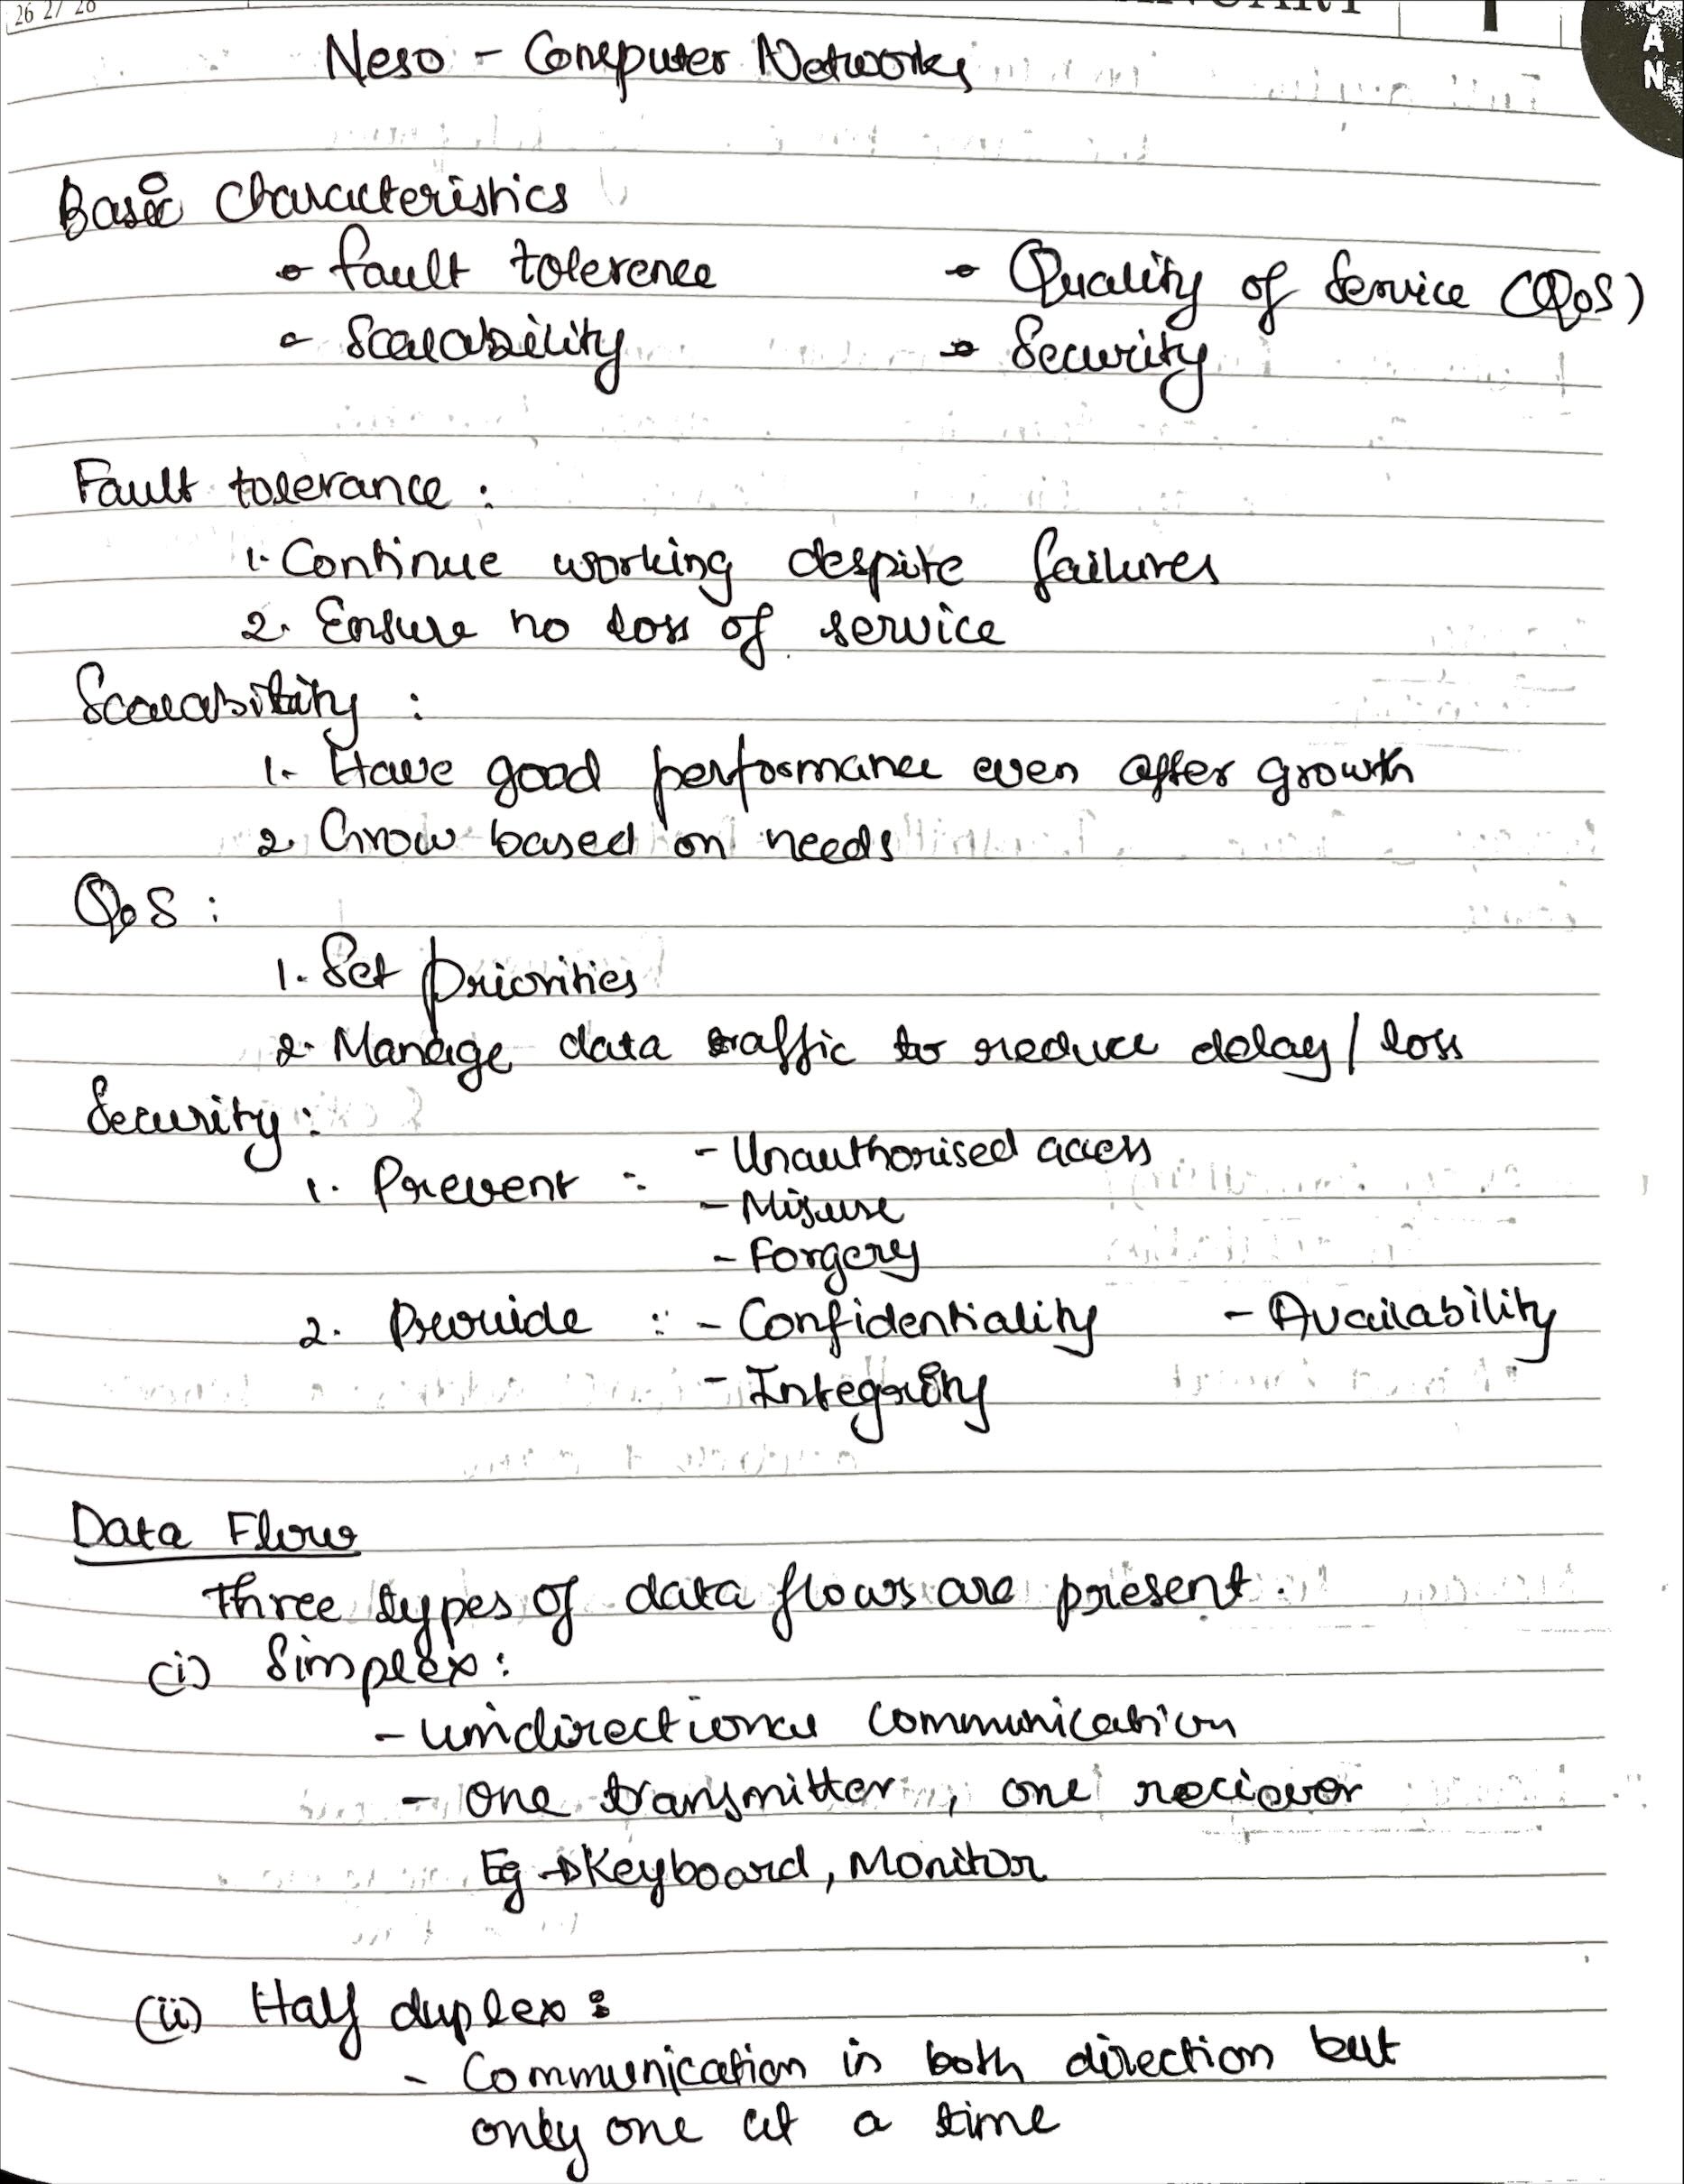 26 27 28
Neso - Computer Networks
Basic Characteristics
- fault tolerence - Quality of Service (QoS)
- Scalability - Security
Fault tolerance :
1. Continue working despite failures
2. Ensure no loss of service
Scalability :
1. Have good performance even after growth
2. Grow based on needs
QoS :
1. Set priorities
2. Manage data traffic to reduce delay / loss
Security :
1. Prevent : - Unauthorised access
- Misuse
- Forgery
2. Provide : - Confidentiality - Availability
- Integrity
Data Flow
Three types of data flows are present.
(i) Simplex :
- unidirectional communication
- one transmitter, one reciever
Eg → Keyboard, Monitor
(ii) Half duplex :
- Communication in both direction but
only one at a time